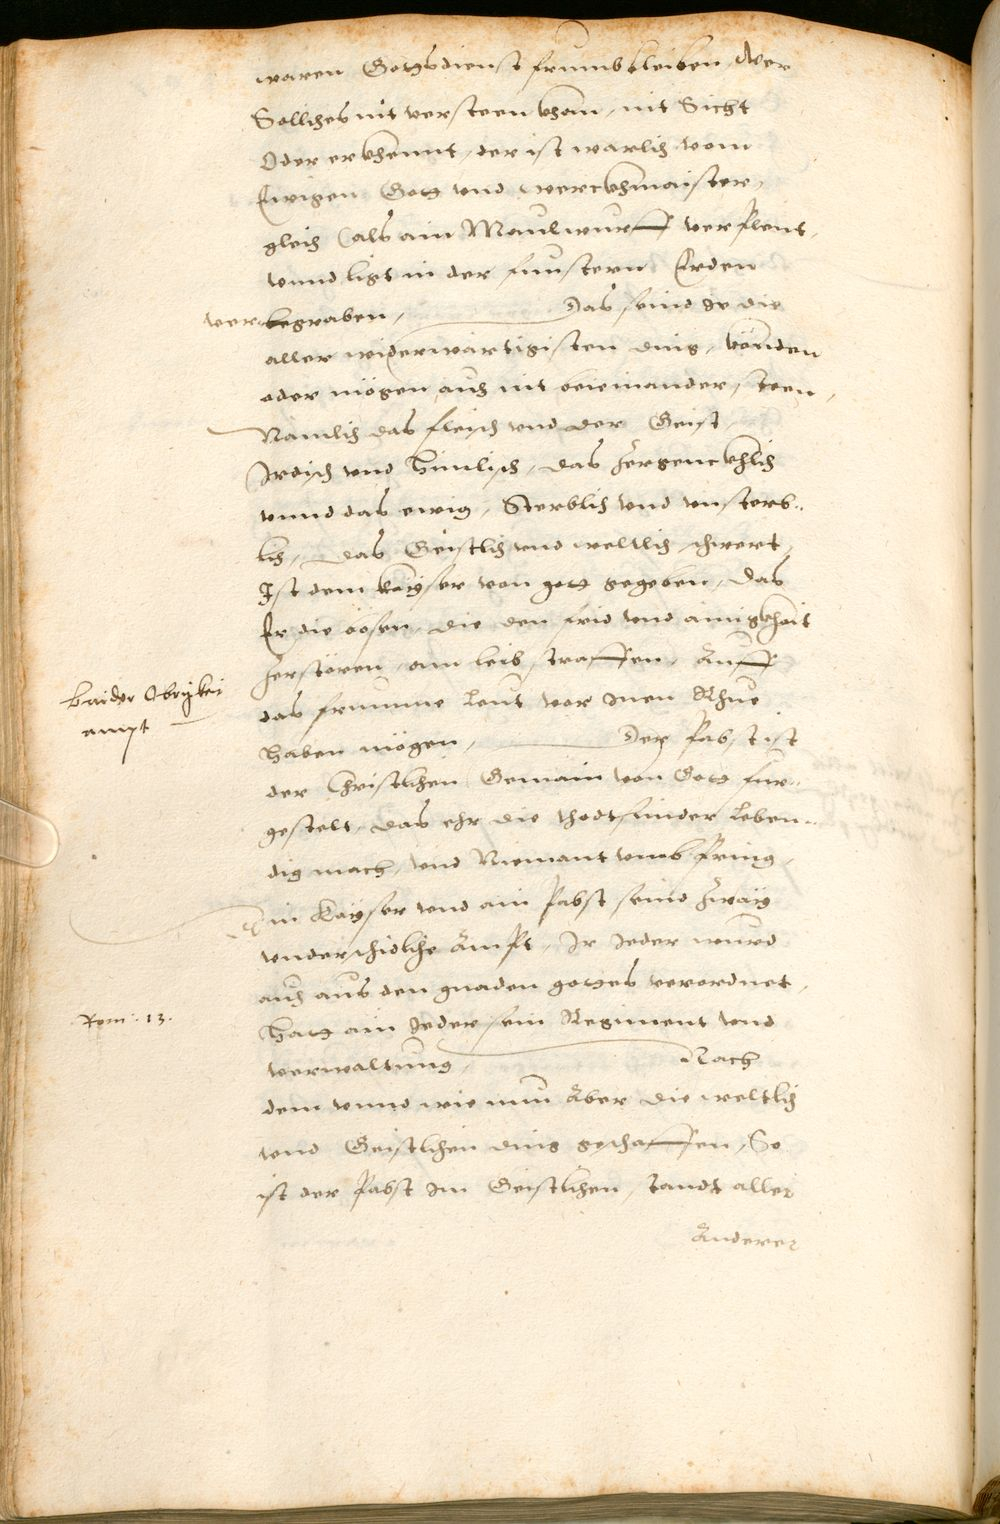 waren Gotzsdienst frumb bleiben, Wer
Sollichs nit versteen khan, nit Sicht
Oder erkhennt, der ist warlich vom
Ewigen Gotz vnd werckhmaister,
gleich (als ain Maulwurff verplent,
vnnd ligt in der finstern Erden
vergraben, Das seind Je die
aller widerwärtigisten ding, künden
oder mögen auch nit beieinander steen,
Nämlich das fleisch vnd der Geist,
Irdisch vnd himlisch, das zergencklich
vnnd das ewig, Sterblich vnd vnsterb-
lich, Das Geistlich vnd weltlich schwert,
Ist dem Kayser von gotz gegeben, Das
Er die bösen, die den frid vnd ainigkhait
zerstören, am leib straffen, Auff
das frumme leut vor Inen Rhue
haben mögen, Der Pabst ist
der Christlichen Gemain von Gotz fur-
gestelt, das ehr die thodtsünder leben-
dig mach, vnd Niemant vmbpring,
Ain Kayser vnd ain Pabst seind zway
vnderschidliche Ämpt, Ir Jeder wurd
auch aus den gnaden gotzes verordnet,
hatz ain Jeder sein Regiment vnd
verwaltung, Nach
dem vnnd wie nun Aber die weltlich
vnd Geistlichen ding geschaffen, So
ist der Pabst Im Geistlichen standt aller
Anderer
baider Obrigkei
ampt
Rom: 13.